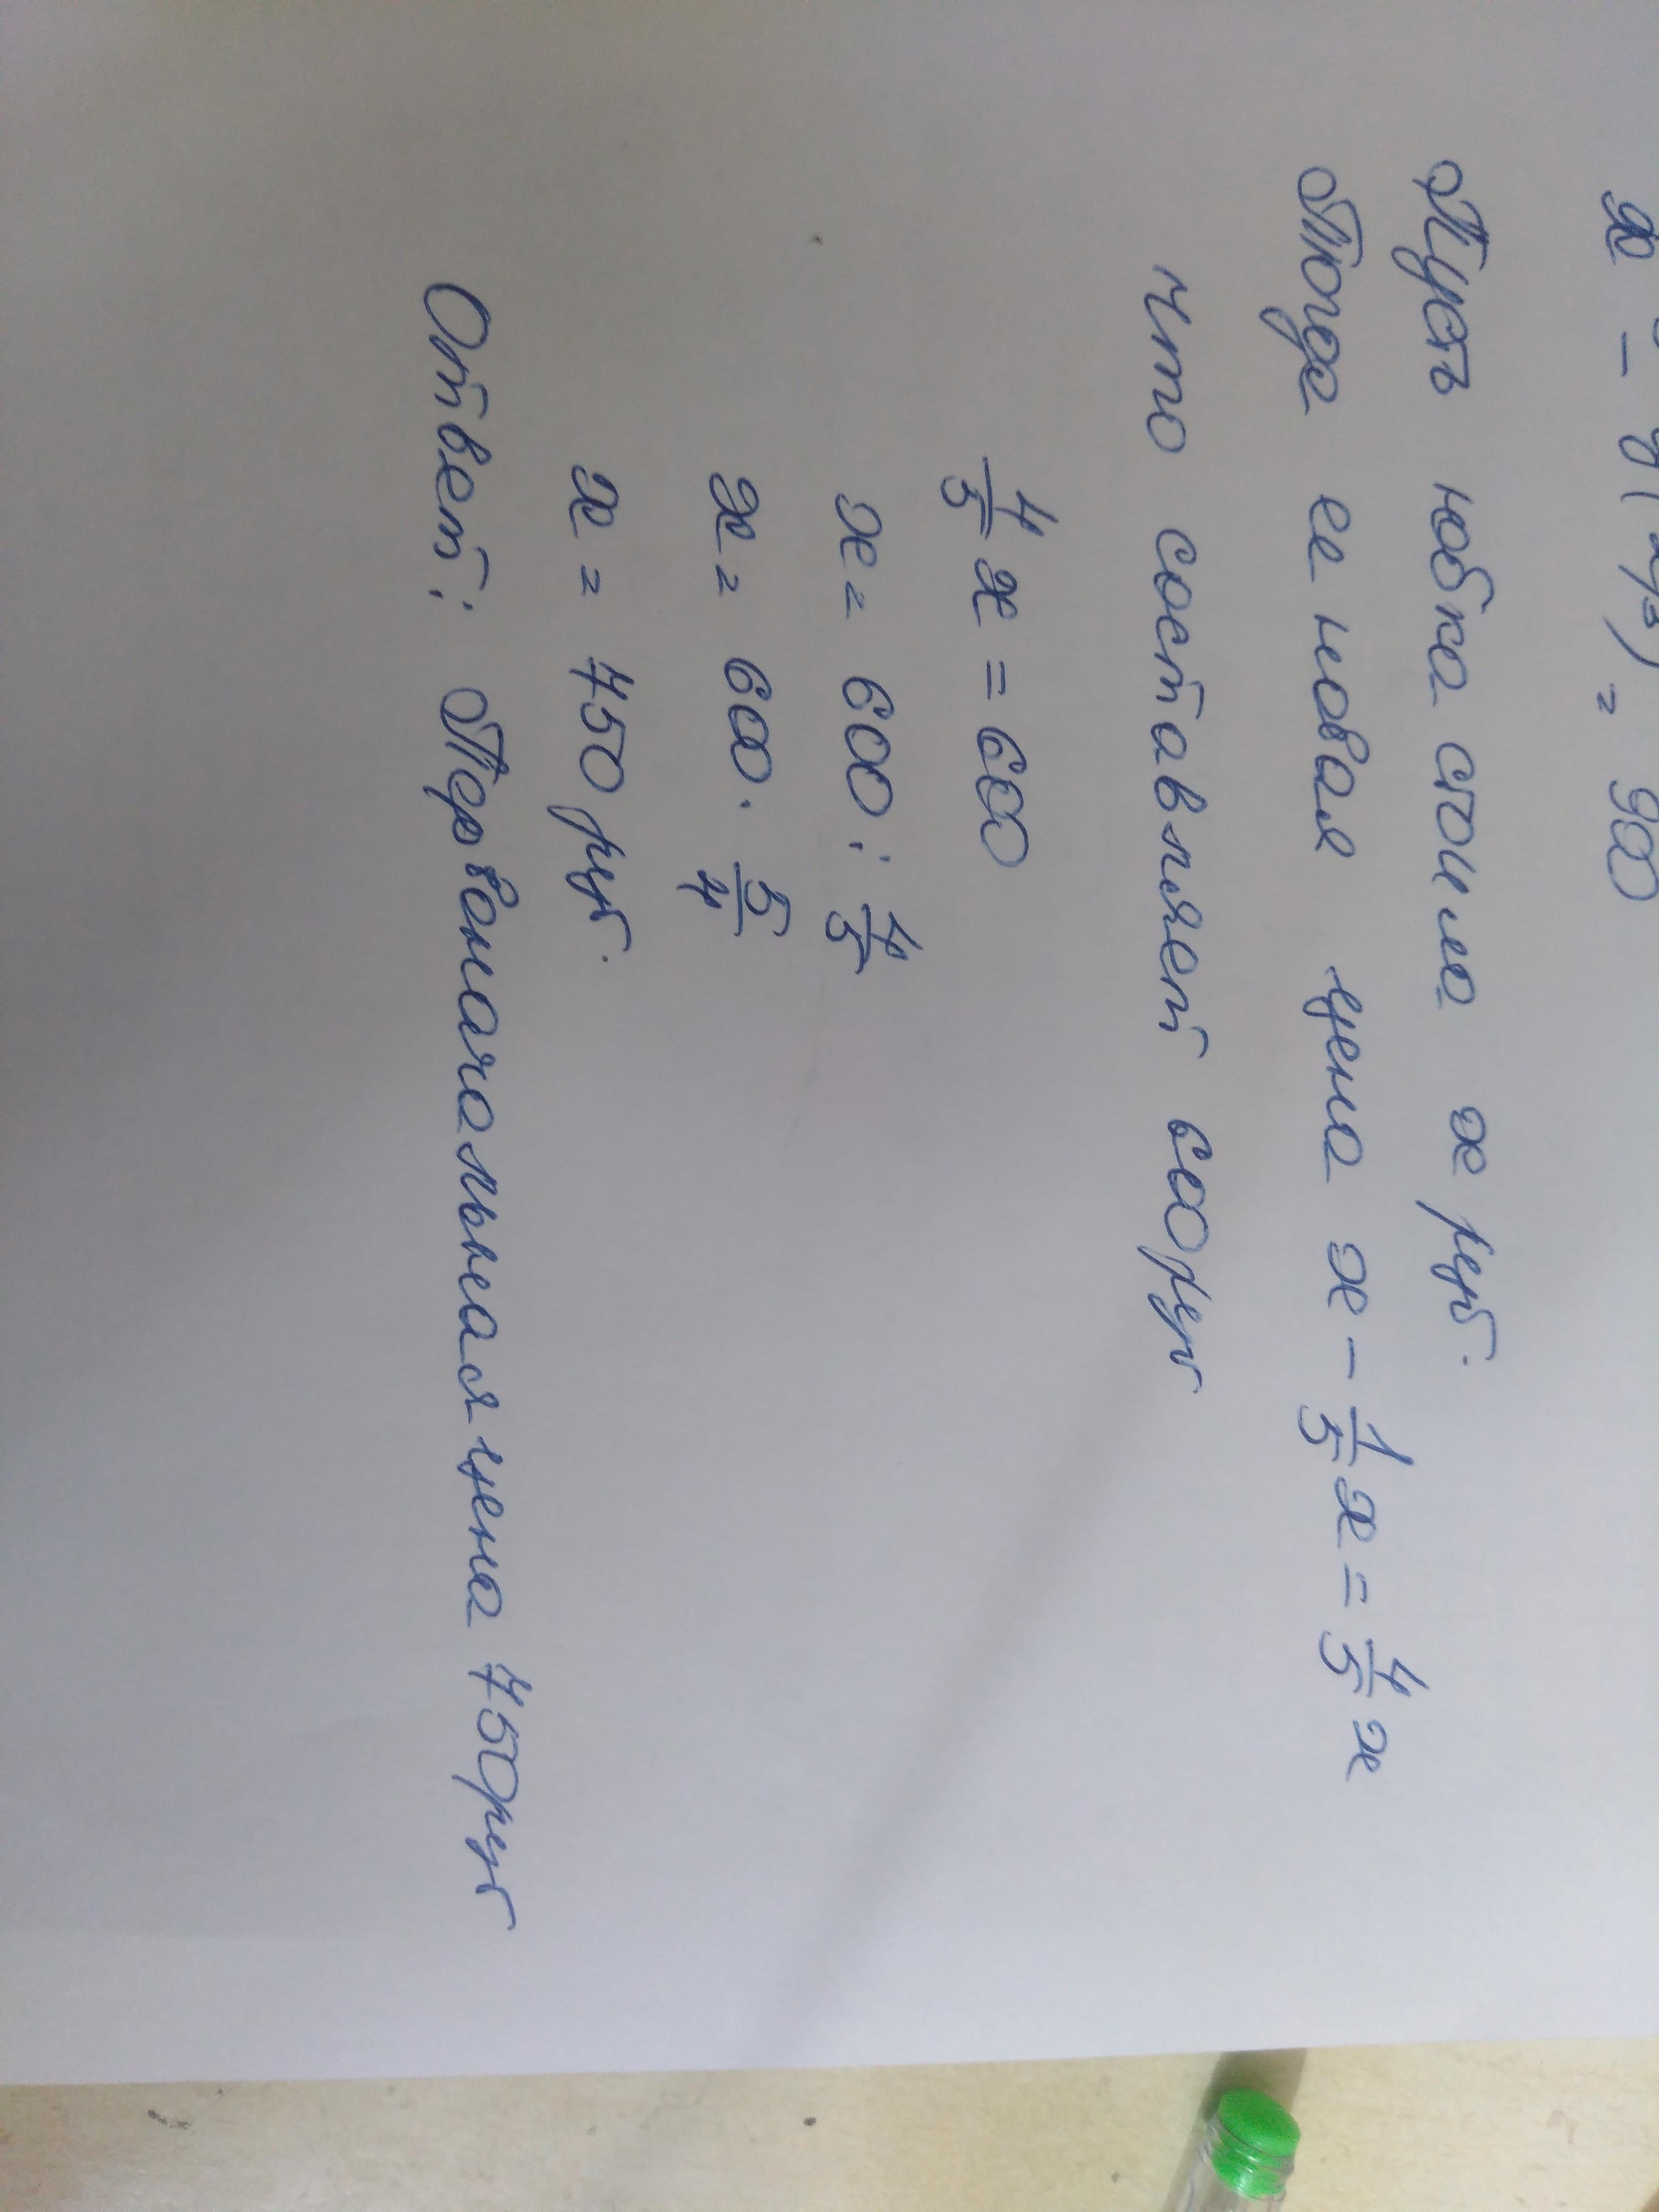 Пусть юбка стоила x руб.
Тогда ее новая цена x - 1/5 x = 4/5 x
что составляет 600 руб
4/5 x = 600
x = 600 : 4/5
x = 600 · 5/4
x = 750 руб.
Ответ: Первоначальная цена 750 руб